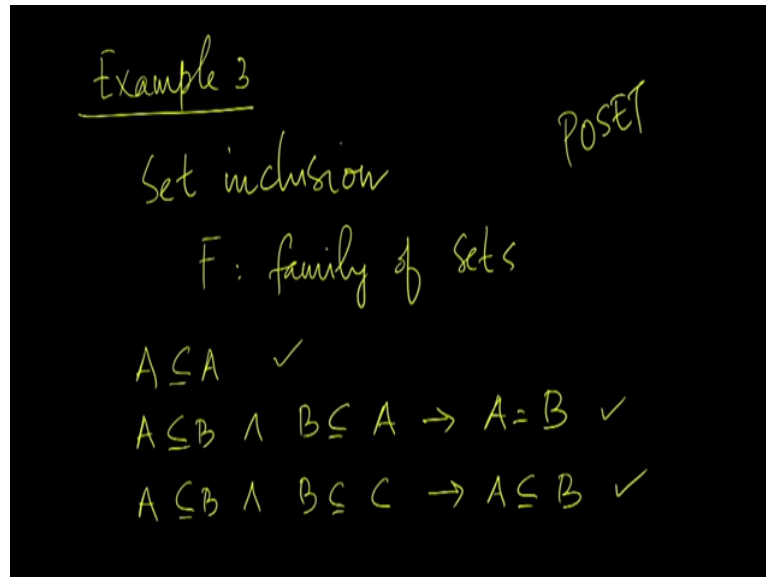 Example 3
POSET
Set inclusion
F: family of sets
A ⊆ A ✓
A ⊆ B ∧ B ⊆ A → A = B ✓
A ⊆ B ∧ B ⊆ C → A ⊆ B ✓